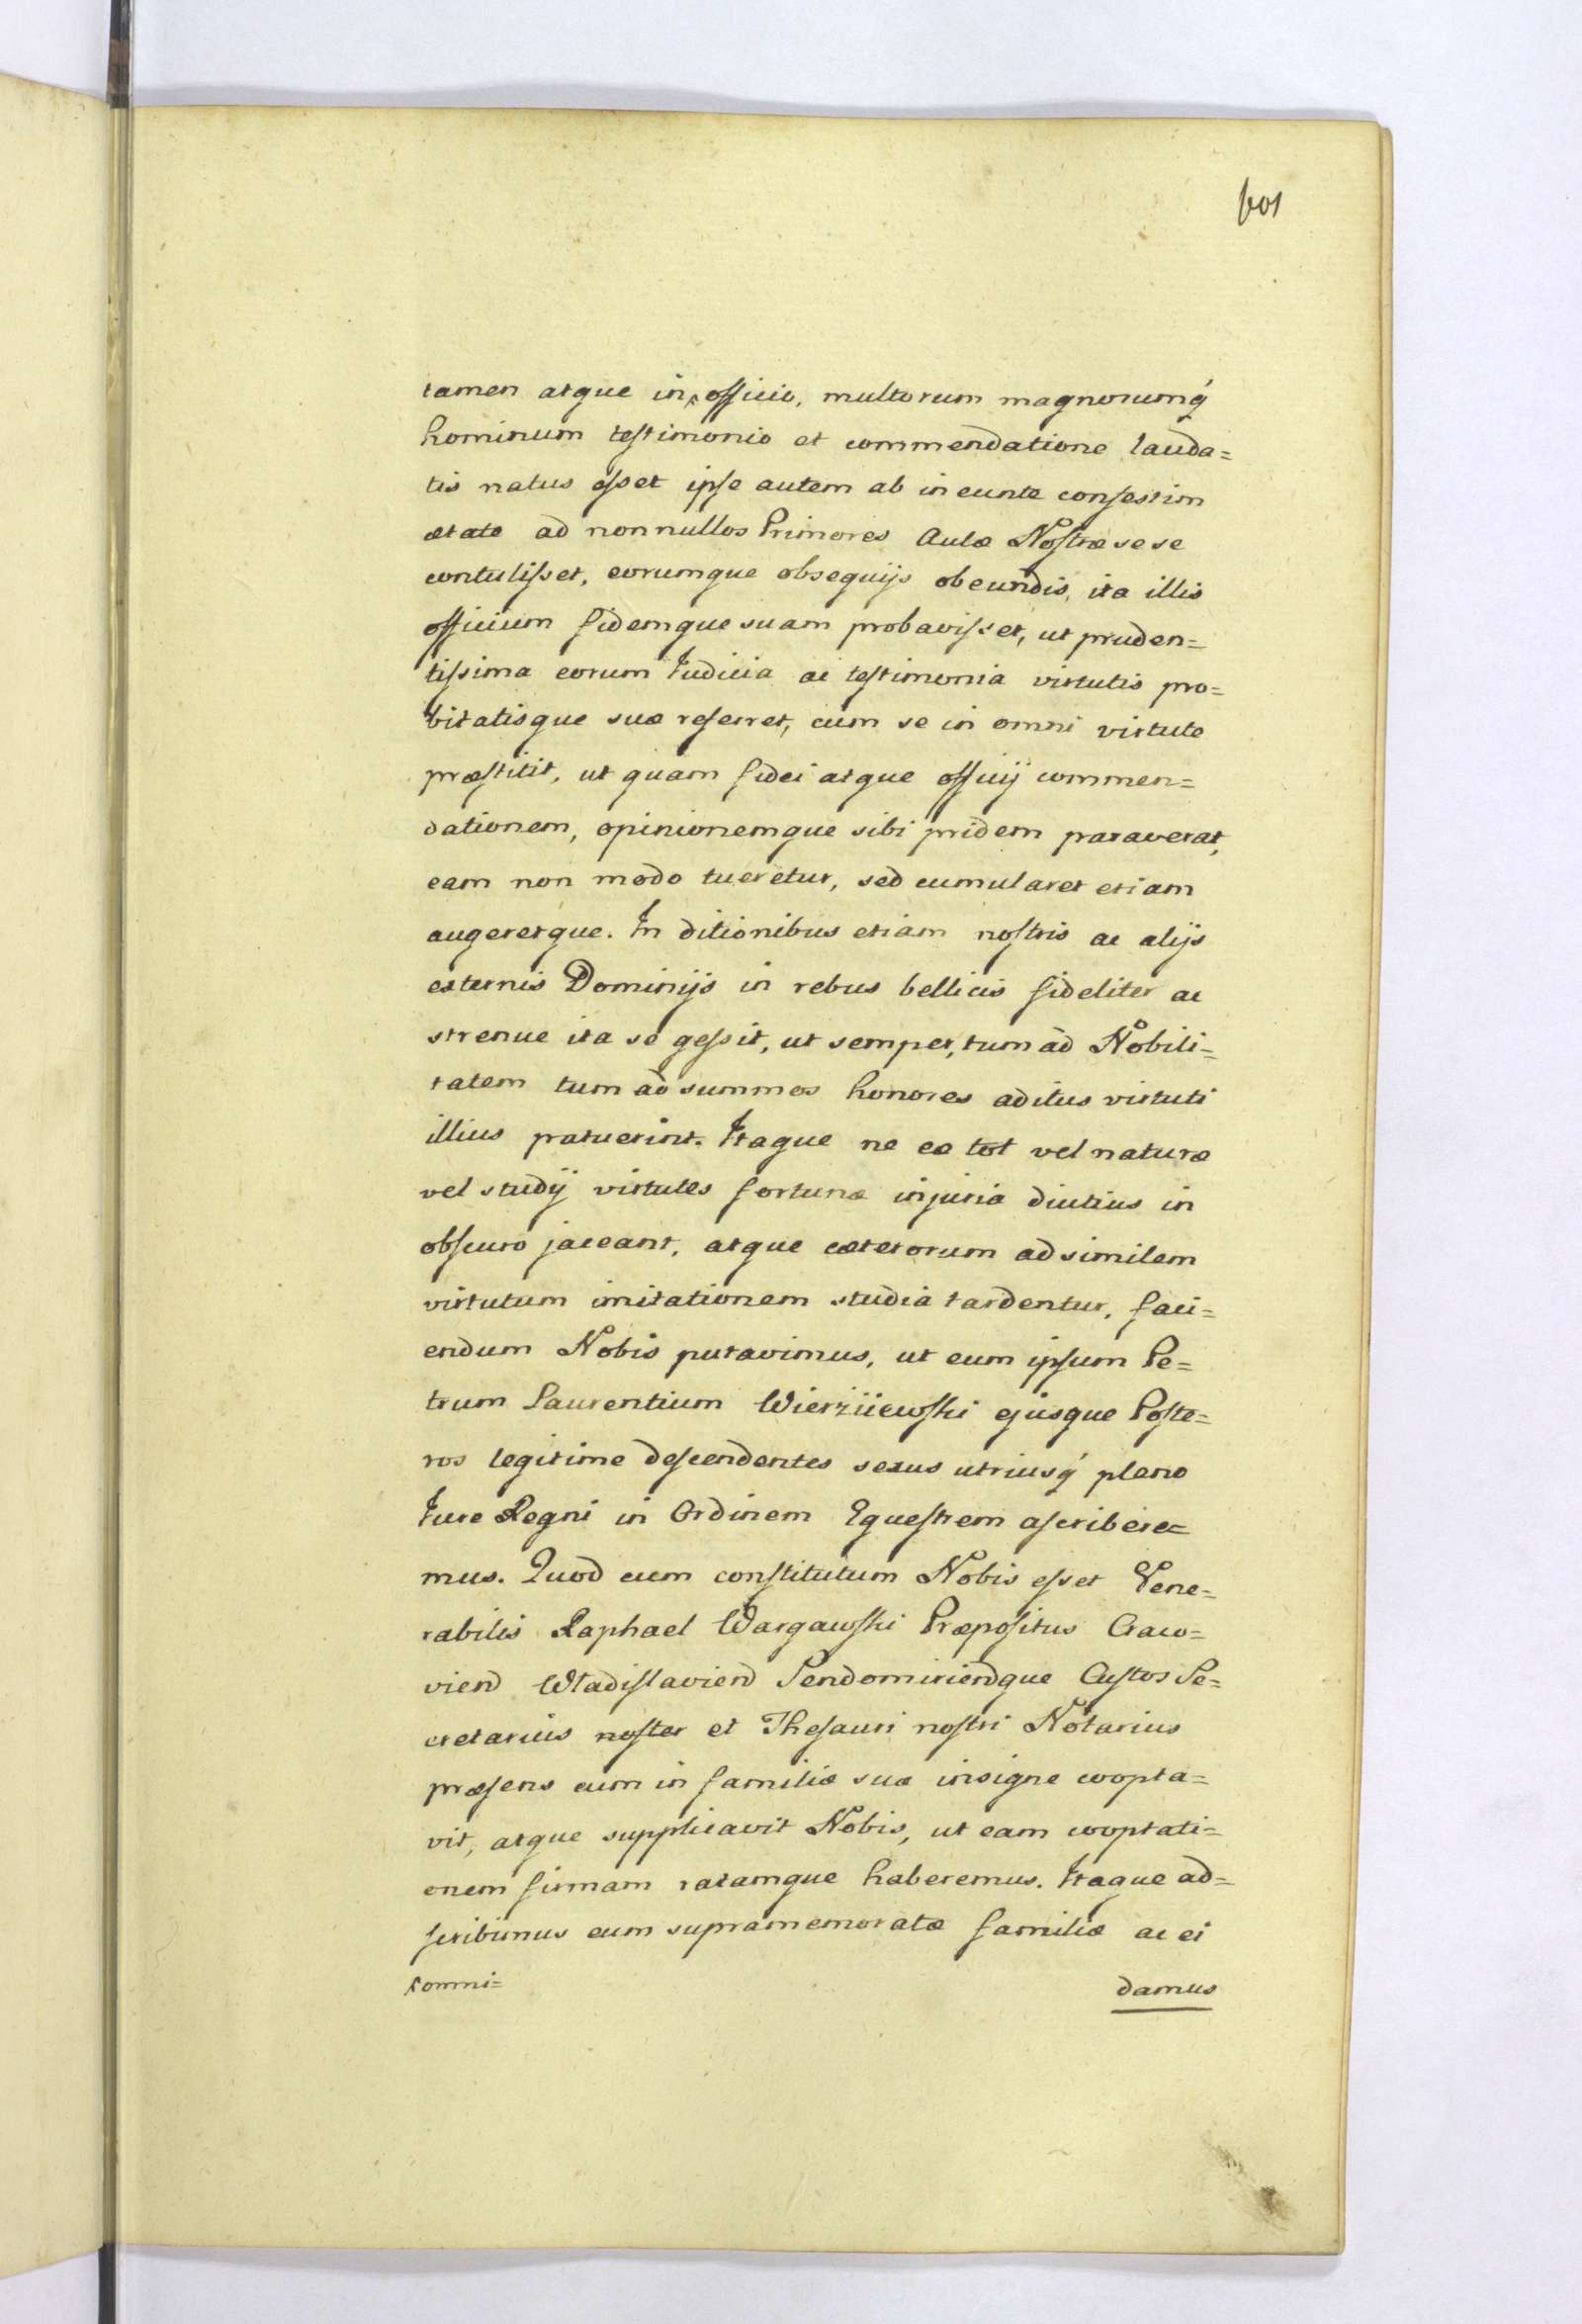 601
tamen atque in officio, multorum magnorumq́
hominum testimonio et commendatione lauda=
tis natus esset ipse autem ab in eunte confestim
ætate ad non nullos Primores Aulæ Nostræ sese
contulisset, eorumque obsequijs obeundis, ita illis
officium fidemque suam probavisset, ut pruden=
tissima eorum Iudicia ac testimonia virtutis pro=
bitatisque suæ referret, cum se in omni virtute
præstitit, ut quam fidei atque officij commen=
dationem, opinionemque sibi pridem paraverat,
eam non modo tueretur, sed cumularet etiam
augeretque. In ditionibus etiam nostris ac alijs
externis Dominijs in rebus bellicis fideliter ac
strenue ita se gessit, ut semper, tum ad Nobili=
tatem tum ad summos honores aditus virtuti
illius patuerint. Itaque ne eæ tot vel naturæ
vel studij virtutes fortunæ injuria diutius in
obscuro jaceant, atque cæterorum ad similem
virtutum imitationem studia tardentur, faci=
endum Nobis putavimus, ut eum ipsum Pe=
trum Laurentium Wierziiewski ejusque Poste=
ros legitime descendentes sexus utriusq́ pleno
Iure Regni in Ordinem Equestrem ascribere=
mus. Quod cum constitutum Nobis esset Vene=
rabilis Raphael Wargawski Præpositus Craco=
vien Wladislavien Sendomirienque Custos Se=
cretarius noster et Thesauri nostri Notarius
præsens eum in familiæ suæ insigne coopta=
vit, atque supplicavit Nobis, ut eam cooptati=
onem firmam ratamque haberemus. Itaque ad=
scribimus eum supramemoratæ familiæ ac ei
comni=
damus